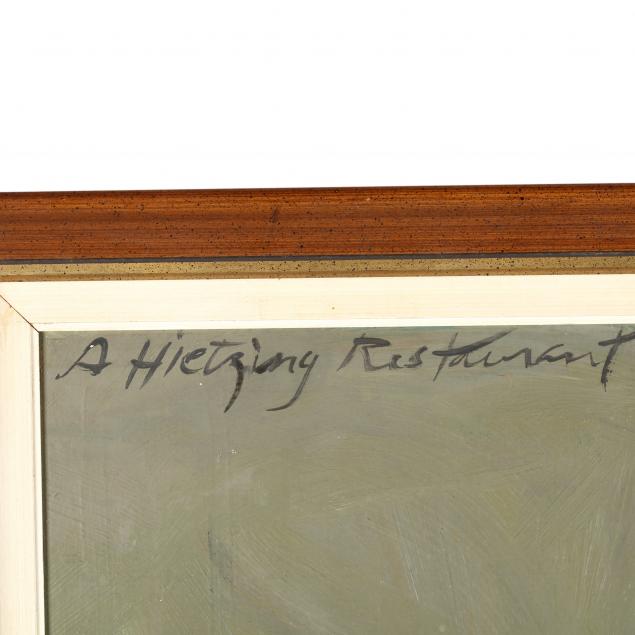 A Hietzing Restaurant